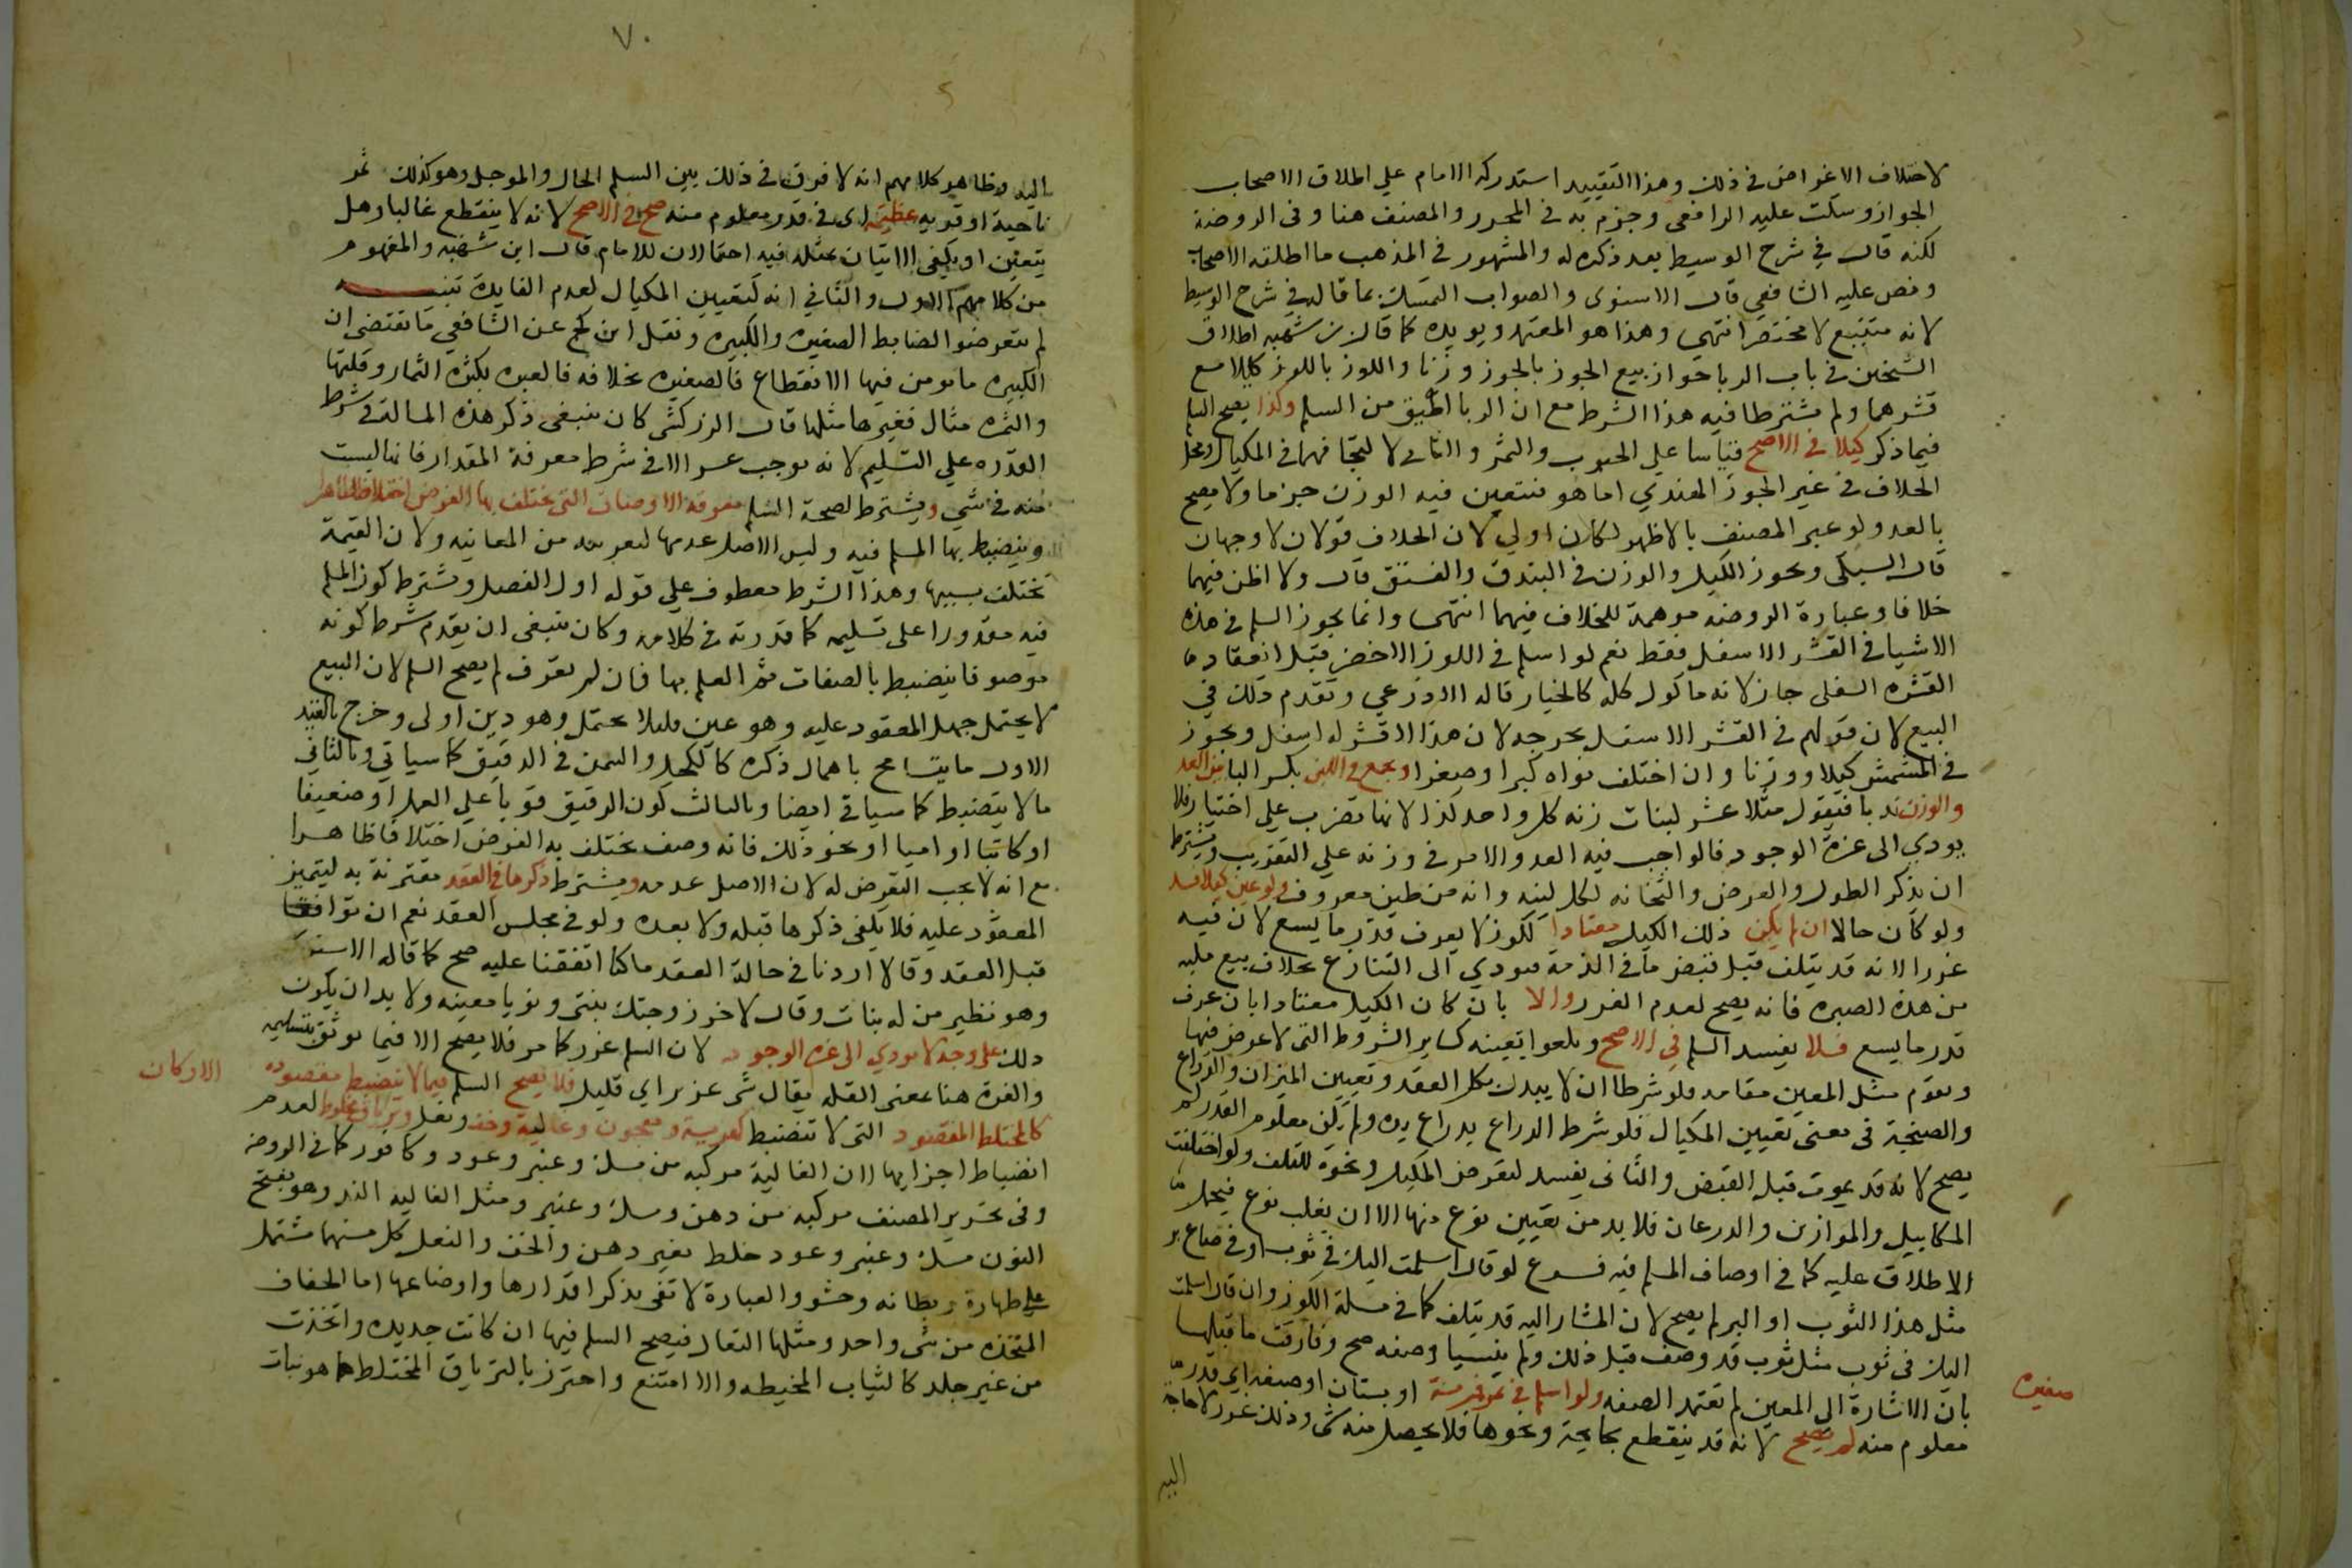 لاختلاف الاغراض في ذلك وهذا التقييد استدركه الامام علي اطلاق الاصحاب
الجواز وسكت عليه الرافعي وجزم به في المحرر والمصنف هنا وفي الروضة
لكنه قال في شرح الوسيط بعد ذكره له والمشهور في المذهب ما اطلقه الاصحاب
ونص عليه الشافعي قال الاسنوى والصواب التمسك بما قاله في شرح الوسيط
لانه متتبع لا مختصر انتهى وهذا هو المعتمد ويويده كما قال بن شهبه اطلاق
الشيخين في باب الربا جواز بيع الجوز بالجوز وزنا واللوز باللوز كيلا مع
قشرهما ولم يشترطا فيه هذا الشرط مع ان الربا اضيق من السلم وكذا يصح السلم
فيما ذكر كيلا في الاصح قياسا على الحبوب والتمر والثاني لا لتجافيهما في المكيال ومحل
الخلاف في غير الجوز الهندي اما هو فيتعين فيه الوزن جزما ولا يصح
بالعد ولو عبر المصنف بالاظهر لكان اولي لان الخلاف قولان لا وجهان
قال السبكى ويجوز الكيل والوزن في البندق والفستق قال ولا اظن فيهما
خلافا وعبارة الروضه موهمة للخلاف فيهما انتهى وانما يجوز السلم في هذه
الاشيا في القشر الاسفل فقط نعم لو اسلم في اللوز الاخضر قبل انعقاد
القشره السفلى جاز لانه ماكول كله كالخيار قاله الاذرعي وتقدم ذلك في
البيع لان قولهم في القشر الاسفل يخرجه لان هذا لا قشر له اسفل ويجوز
في المشمش كيلا ووزنا وان اختلف نواه كبرا وصغرا ويجمع في اللبن بكسر البا بين العد
والوزن ندبا فيقول مثلا عشر لبنات زنه كل واحد كذا لانها تضرب علي اختيار فلا
يودي الى عزة الوجود فالواجب فيه العد والامر في وزنه علي التقريب ويشترط
ان يذكر الطول والعرض والثخانه لكل لبنه وانه من طين معروف ولو عين كيلا فسد
ولو كان حالا ان لم يكن ذلك الكيل معتادا ككوز لا يعرف قدر ما يسع لان فيه
غررا لانه قد يتلف قبل قبض ما في الذمة فيودي الى التنازع بخلاف بيع ملئه
من هذه الصبره فانه يصح لعدم الغرر والا بان كان الكيل معتادا بان عرف
قدر ما يسع فلا يفسد السلم في الاصح ويلغوا تعينه كساير الشروط التي لا غرض فيها
ويقوم مثل المعين مقامه فلو شرطا ان لا يبدل بطل العقد وتعيين الميزان والذراع
والصنجة في معنى تعيين المكيال فلو شرط الذراع بذراع يده ولم يكن معلوم القدر لم
يصح لانه قد يموت قبل القبض والثاني يفسد لتعرض المكيل ونحوه للتلف ولو اختلفت
المكاييل والموازين والدرعان فلابد من تعيين نوع منها الا ان يغلب نوع فيحمل
الاطلاق عليه كما في اوصاف المسلم فيه فرع لو قال اسلمت اليك في ثوب او في صاع بر
مثل هذا الثوب او البر لم يصح لان المشار اليه قد يتلف كما في مسلة الكوز وان قال اسلمت
اليك في ثوب مثل ثوب قد وصف قبل ذلك ولم ينسيا وصفه صح وفارقت ما قبلها
بان الاشارة الى المعين لم تعتمد الصفه ولو اسلم في ثمر قرية او بستان او ضيعه اي قدر
صغيره
معلوم منه لم يصح لانه قد ينقطع بجايحة ونحوها فلا يحصل منه شى وذلك غرر لا حاجة
اليه
٧٠
اليه وظاهر كلامهم انه لا فرق في ذلك بين السلم الحال والموجل وهو كذلك ثمر
ناحية او قريه عظيمة اى في قدر معلوم منه صح في الاصح لانه لا ينقطع غالبا وهل
يتعين او يكفى الاتيان بمثله فيه احتمالان للامام قال ابن شهبه والمفهوم
من كلامهم الاول والثاني انه كتعيين المكيال لعدم الفايدة تنبيه
لم يتعرضوا لضابط الصغيره والكبيره ونقل ابن كج عن الشافعي ما يقتضى ان
الكبيره ما يومن فيها الانقطاع فالصغيره بخلافه فالعبره بكثرة الثمار وقلتها
والثمره مثال فغيرها مثلها قال الزركشى كان ينبغى ذكر هذه المسالة في شرط
القدره علي التسليم لانه يوجب عسرا لا في شرط معرفة المقدار فانها ليست
منه في شي ويشترط لصحة السلم معرفة الاوصاف التي يختلف بها الغرض اختلافا ظاهرا
وينضبط بها المسلم فيه وليس الاصل عدمها لتعريه من المعاينه ولان القيمة
تختلف بسببها وهذا الشرط معطوف علي قوله اول الفصل ويشترط كون المسلم
فيه مقدورا على تسليمه كما قدرته في كلامه وكان ينبغى ان يقدم شرط كونه
موصوفا ينضبط بالصفات ثم العلم بها فان لم تعرف لم يصح السلم لان البيع
لا يحتمل جهل المعقود عليه وهو عين فلان لا يحتمل وهو دين اولى وخرج بالقيد
الاول ما يتسامح باهمال ذكره كالكحل والسمن في الرقيق كما سياتي وبالثاني
ما لا ينضبط كما سياتي ايضا وبالثالث كون الرقيق قويا علي العمل او ضعيفا
او كاتبا او اميا او نحو ذلك فانه وصف يختلف به الغرض اختلافا ظاهرا
مع انه لا يجب التعرض له لان الاصل عدمه ويشترط ذكرها في العقد مقترنة به ليتميز
المعقود عليه فلا يكفى ذكرها قبله ولا بعده ولو في مجلس العقد نعم ان توافقا
قبل العقد وقالا اردنا في حالة العقد ما كنا اتفقنا عليه صح كما قاله الاسنوى
وهو نظير من له بنات وقال لاخر زوجتك بنتى ونويا معينه ولا بد ان يكون
ذلك على وجه لا يودي الى عزه الوجود لان السلم غرر كما مر فلا يصح الا فيما يوثق بتسليمه
والعزة هنا بمعنى القله يقال شى عزيز اي قليل فلا يصح السلم فيما لا ينضبط مقصوده
الاركان
كالمختلط المقصود التي لا تنضبط كهريسة ومعجون وغالية وخف ونعل وترياق مخلوط لعدم
انضباط اجزايها اذ الغالية مركبه من مسك وعنبر وعود وكافور كما في الروضه
وفي تحرير المصنف مركبه من دهن ومسك وعنبر ومثل الغاليه الند وهو بفتح
النون مسك وعنبر وعود خلط بغير دهن والخف والنعل كل منهما مشتمل
علي ظهارة وبطانه وحشو والعبارة لا تفى بذكر اقدارها واوضاعها اما الخفاف
المتخذه من شى واحد ومثلها النعال فيصح السلم فيها ان كانت جديده واتخذت
من غير جلد كالثياب المخيطه والا امتنع واحترز بالترياق المختلط عما هو نبات